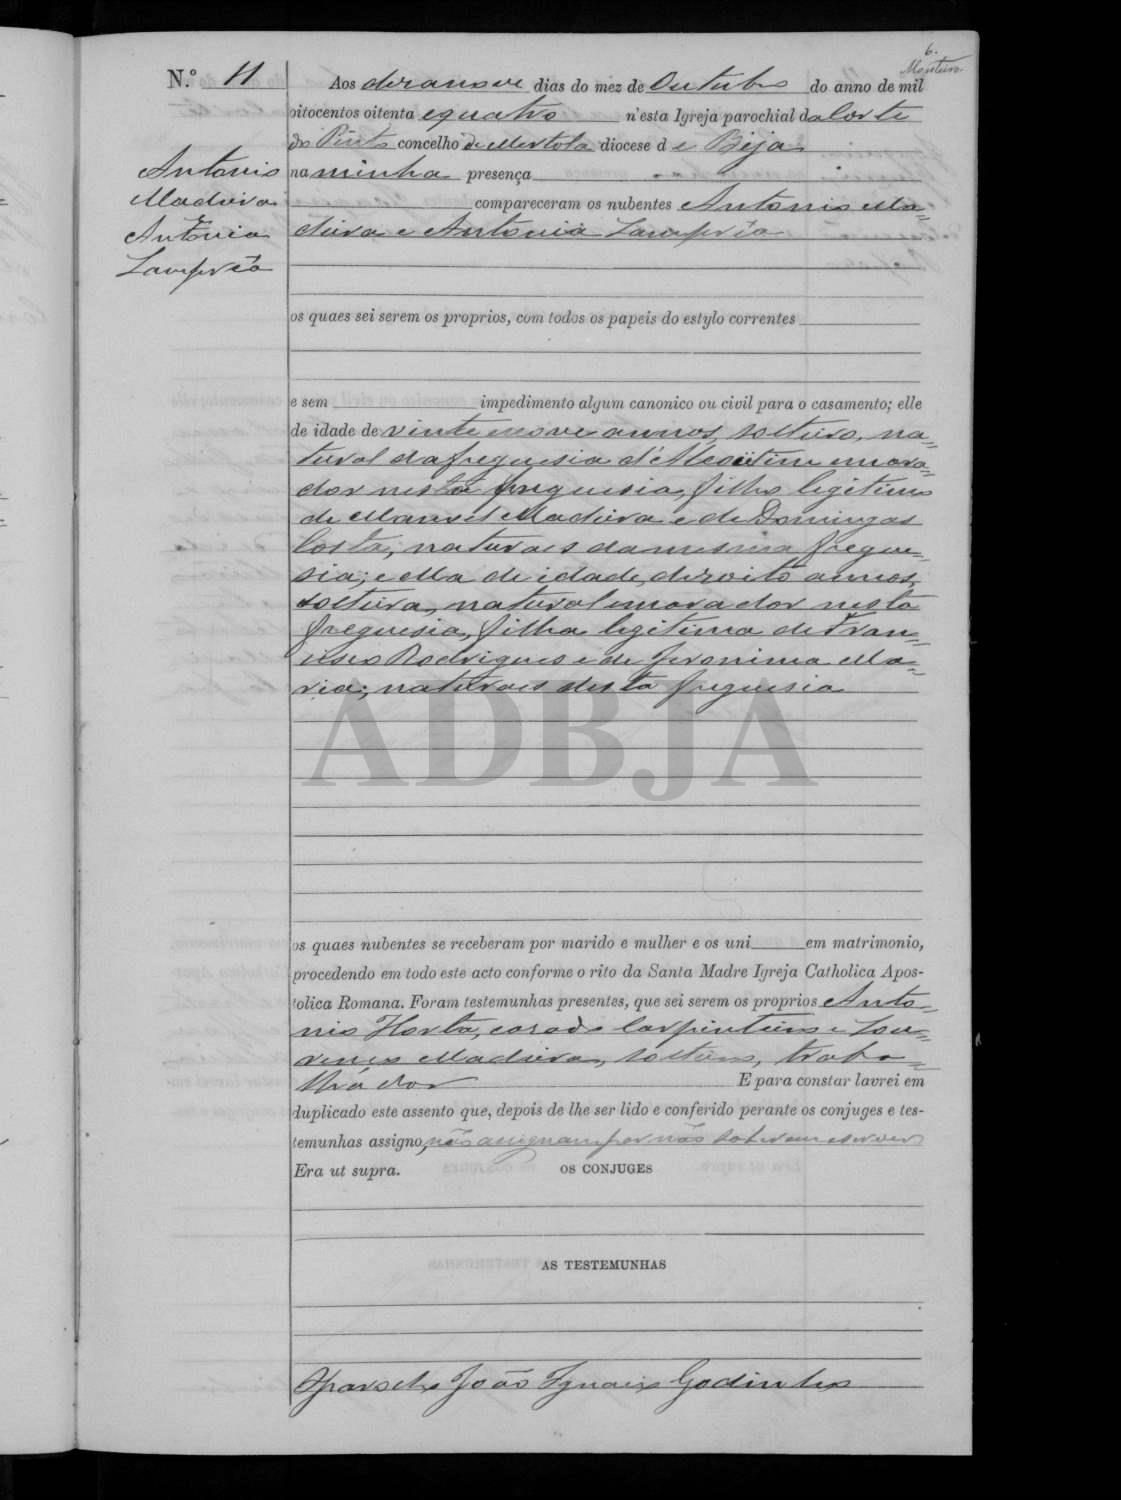 6.
Monteiro
N.º 11
Aos dezanove dias do mez de Outubro do anno de mil
oitocentos oitenta e quatro n'esta Igreja parochial da Corte
do Pinto concelho de Mertola diocese de Beja
na minha presença
compareceram os nubentes Antonio Ma=
deira e Antónia Lampreia
Antonio
Madeira
E
Antonia
Lampreia
os quaes sei serem os proprios, com todos os papeis do estylo correntes
e sem impedimento algum canonico ou civil para o casamento; elle
de idade de vinte e nove annos, solteiro, na=
tural da freguesia d'Alcoutim e mora=
dor nesta freguesia, filho legitimo
de Manoel Madeira e de Domingas
Costa, naturaes da mesma fregue=
sia; e ella de idade, dezoito annos,
solteira, natural e morador nesta
freguesia, filha legitima de Fran=
cisco Rodrigues e de Jeronima Ma=
ria; naturaes desta freguesia
ADBJA
os quaes nubentes se receberam por marido e mulher e os uni em matrimonio,
procedendo em todo este acto conforme o rito da Santa Madre Igreja Catholica Apos-
tolica Romana. Foram testemunhas presentes, que sei serem os proprios Anto=
nio Horta, casado carpinteiro e Lou=
renço Madeira, solteiro, traba=
lhador E para constar lavrei em
duplicado este assento que, depois de lhe ser lido e conferido perante os conjuges e tes-
temunhas assigno, não assignam por não saberem escrever
Era ut supra.
OS CONJUGES
AS TESTEMUNHAS
O parocho João Ignacio Godinho